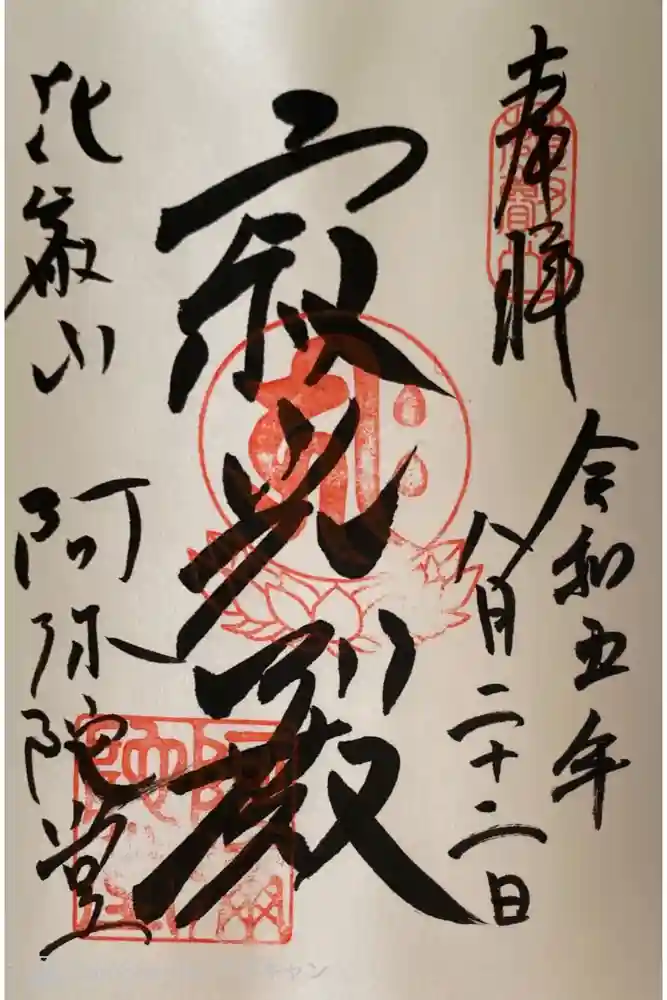 奉拝
令和五年
八月二十二日
寂光殿
花厳山 阿弥陀堂